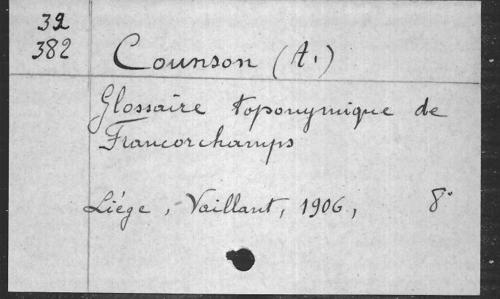 39
382
Counson (A.)
Glossaire toponymique de
Francorchamps
Liége, Vaillant, 1906, 8°